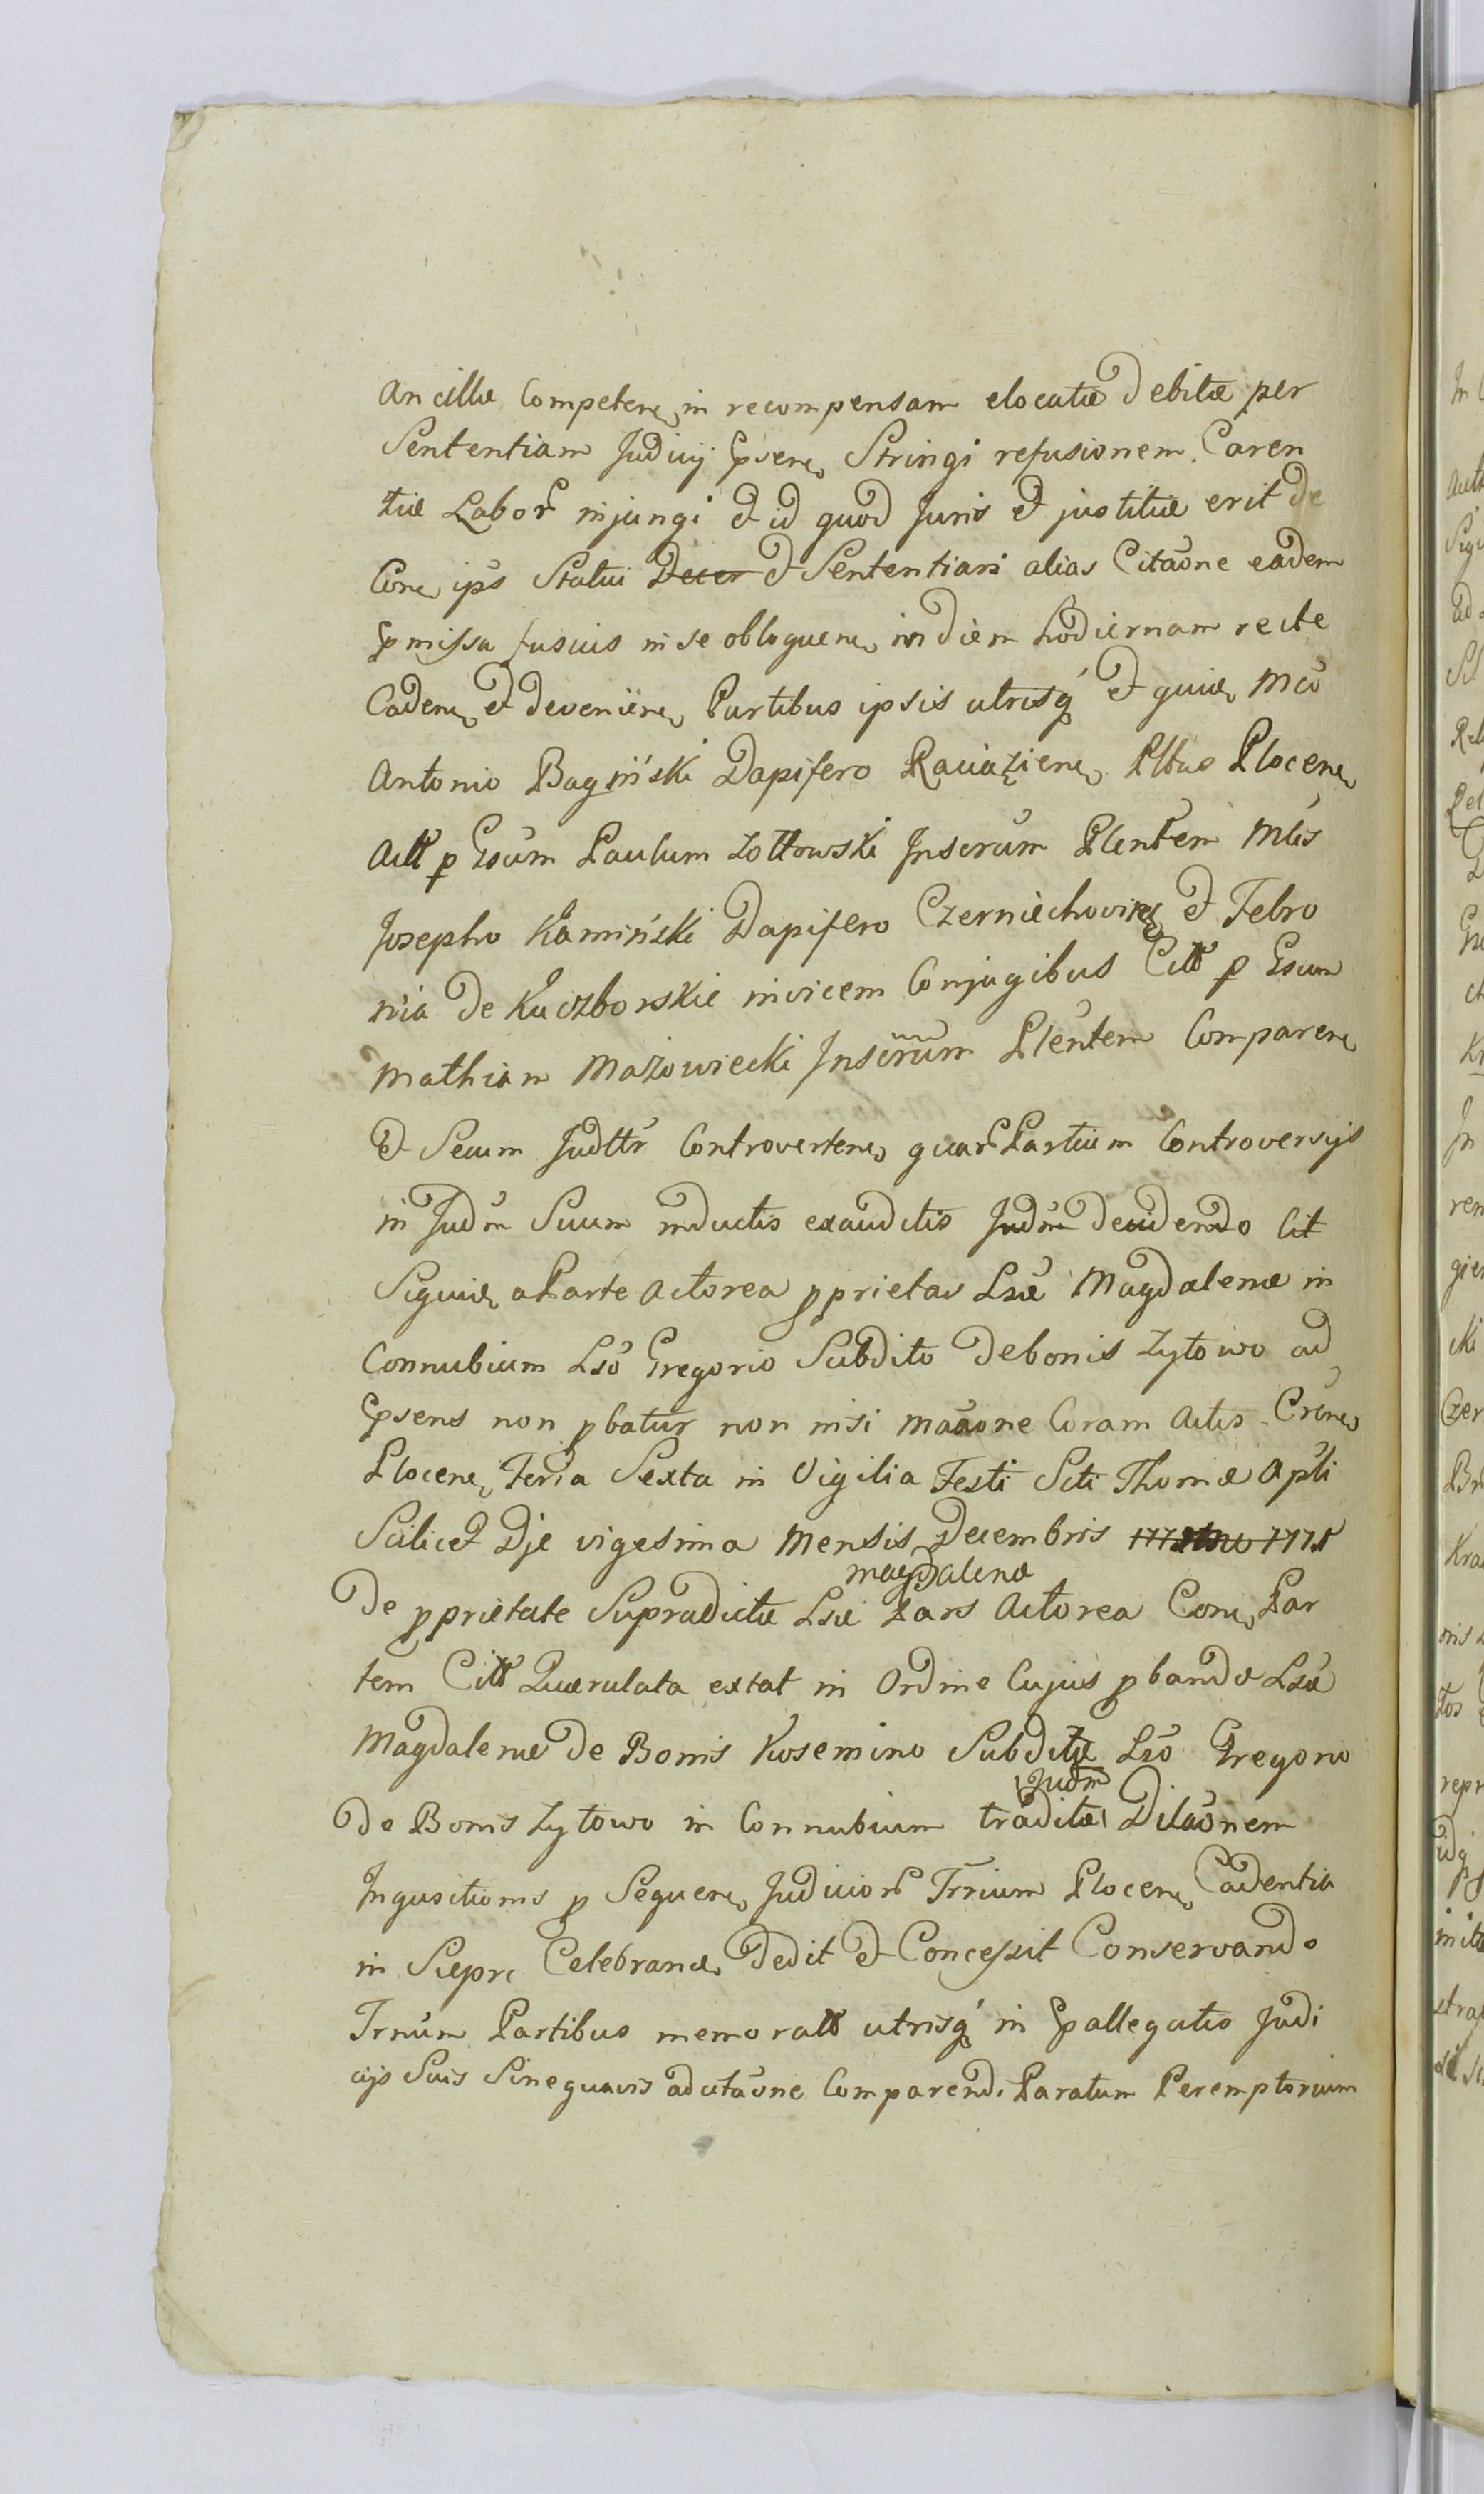 Ancillæ Competen in recompensam elocatæ Debitæ per
Sententiam Judicij Ppsen Stringi refusionem Caren
tiæ Labor injungi et id quod Juris et justitiæ erit de
Cone ips Statui Decer et Sententiari alias Citaōne eadem
pmissa fusius in se obloquen in diem hodiernam recte
Caden et devenien Partibus ipsis utrisq et quid Mco
Antonio Bagiński Dapifero Raciązien Plbus Plocen
Actt p Gsum Paulum Zottowski Jnscrum Plentem Mlis
Josepho Kamiński Dapifero Czerniechovien et Febro
nia de Kuczborskie invicem Conjugibus Citt p Gsum
Mathiam Mazowiecki Jnscrum Plentem Comparen
et Secum Judttr Controverten quar Partium Controversijs
in Judm Suum inductis exauditis Judm decidendo Cit
Siquid a Parte Actorea pprietas Lsæ Magdalenæ in
Connubium Lso Gregorio Subdito de bonis Zytowo ad
Ppsens non pbatur non nisi maaone Coram Actis Cren
Plocen Feria Sexta in Vigilia Festi Scti Thomæ Apli
Scilicet Dje vigesima Mensis Decembris
magdalenæ
De pprietate Supradictæ Lsæ Pars Actorea Con Par
tem Citt Quærulata extat in Ordine Cujus pbandæ Lsæ
Magdalenæ de Bonis Kosemino Subditæ Lso Gregorio
Judm
De Bonis Zytowo in Connubium traditæ Dilaōnem
Inqusitionis p Sequen Judicior Trrium Plocen Cadentia
in Sieprc Celebrand Dedit et Concessit Conservando
Trnum Partibus memoratt utrisq in Ppallegatis Judi
cijs Suis Sine quavis adcitaōne Comparendi Paratum Peremptorium